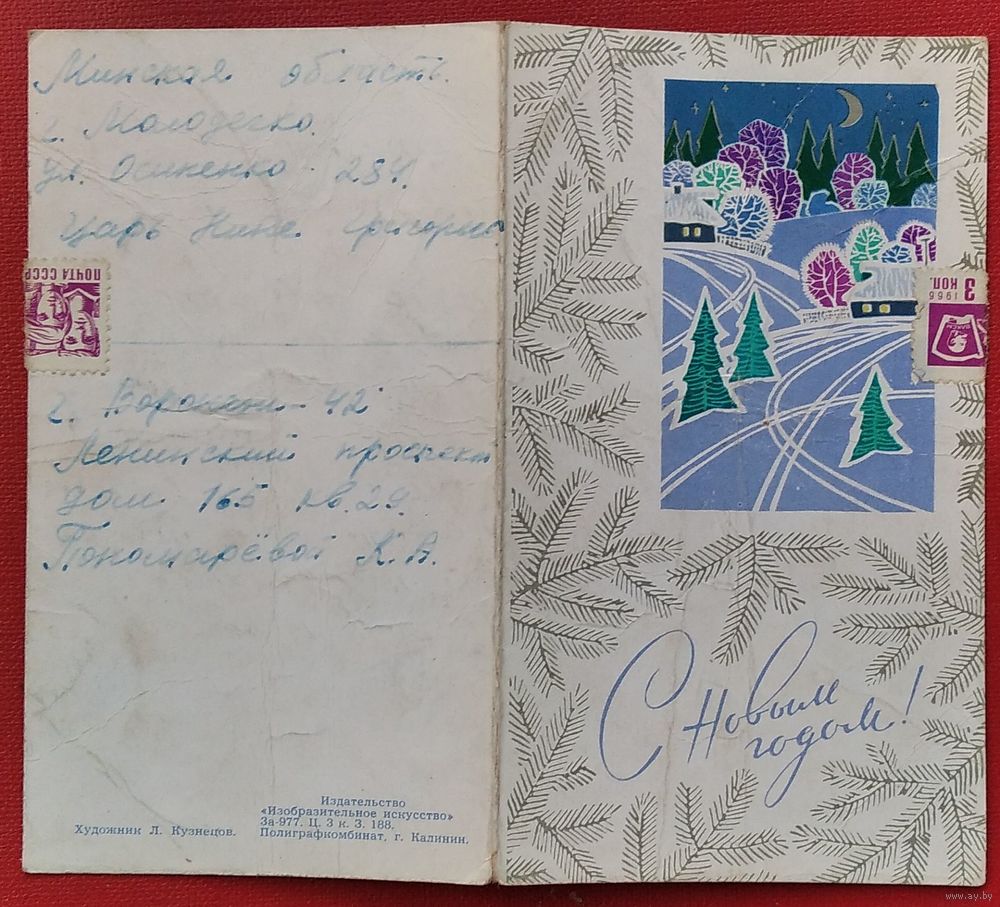 Минская область.
г. Молодечко.
ул. Осипенко 23
Царь Нине Григорьев
ПОЧТА СССР
г. Воронеж - 42
Ленинский проспект
дом 165 кв. 29.
Пономарёвой К. А.
Художник Л. Кузнецов.
Издательство
«Изобразительное искусство»
За-977. Ц. 3 к. З. 188.
Полиграфкомбинат, г. Калинин.
1966
3 КОП.
С Новым
годом!
www.ay.by